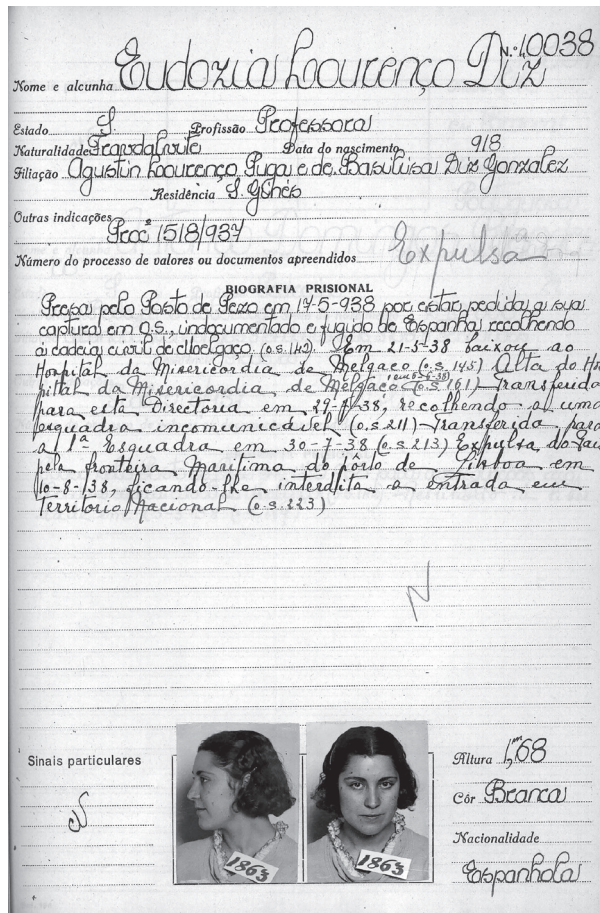 N.º 10038
Nome e alcunha Eudozia Lourenço Diz
Estado S. Profissão Professora
Naturalidade Data do nascimento 918
Filiação Agustin Lourenço Puga e de Basilisa Diz Gonzalez
Residência S. Ginés
Outras indicações
Procº 1518/937
Número do processo de valores ou documentos apreendidos
Expulsa
BIOGRAFIA PRISIONAL
Presa pelo Posto de Pezo em 17-5-938 por estar pedida a sua
captura em o.s., indocumentado e fugido de Espanha recolhendo
á cadeia civil de Melgaço (o.s. 142). Em 21-5-38 baixou ao
Hospital da Misericordia de Melgaço (o.s. 145) Alta do Hos
pital da Misericordia de Melgaço (o.s. 161)-Transferida
para esta Directoria em 29-7-38, recolhendo a uma
esquadra incomunicável (o.s. 211)-Transferida para
a 1ª Esquadra em 30-7-38 (o.s. 213) Expulsa do Pais
pela fronteira Maritima do pôrto de Lisboa em
10-8-138, ficando-lhe interdita a entrada em
Territorio Nacional (o.s. 223)
N
Sinais particulares
1863
1863
Altura 1,ᵐ68
Côr Branca
Nacionalidade
Espanhola